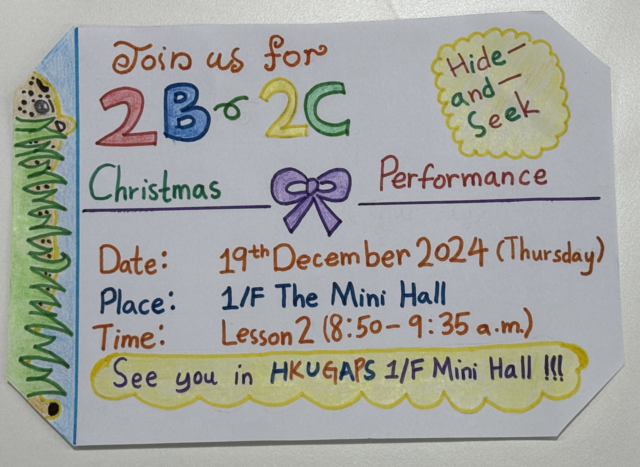 Join us for
2B & 2C
Hide-
and-
Seek
Christmas Performance
Date: 19th December 2024 (Thursday)
Place: 1/F The Mini Hall
Time: Lesson 2 (8:50 - 9:35 a.m.)
See you in HKUGAPS 1/F Mini Hall !!!